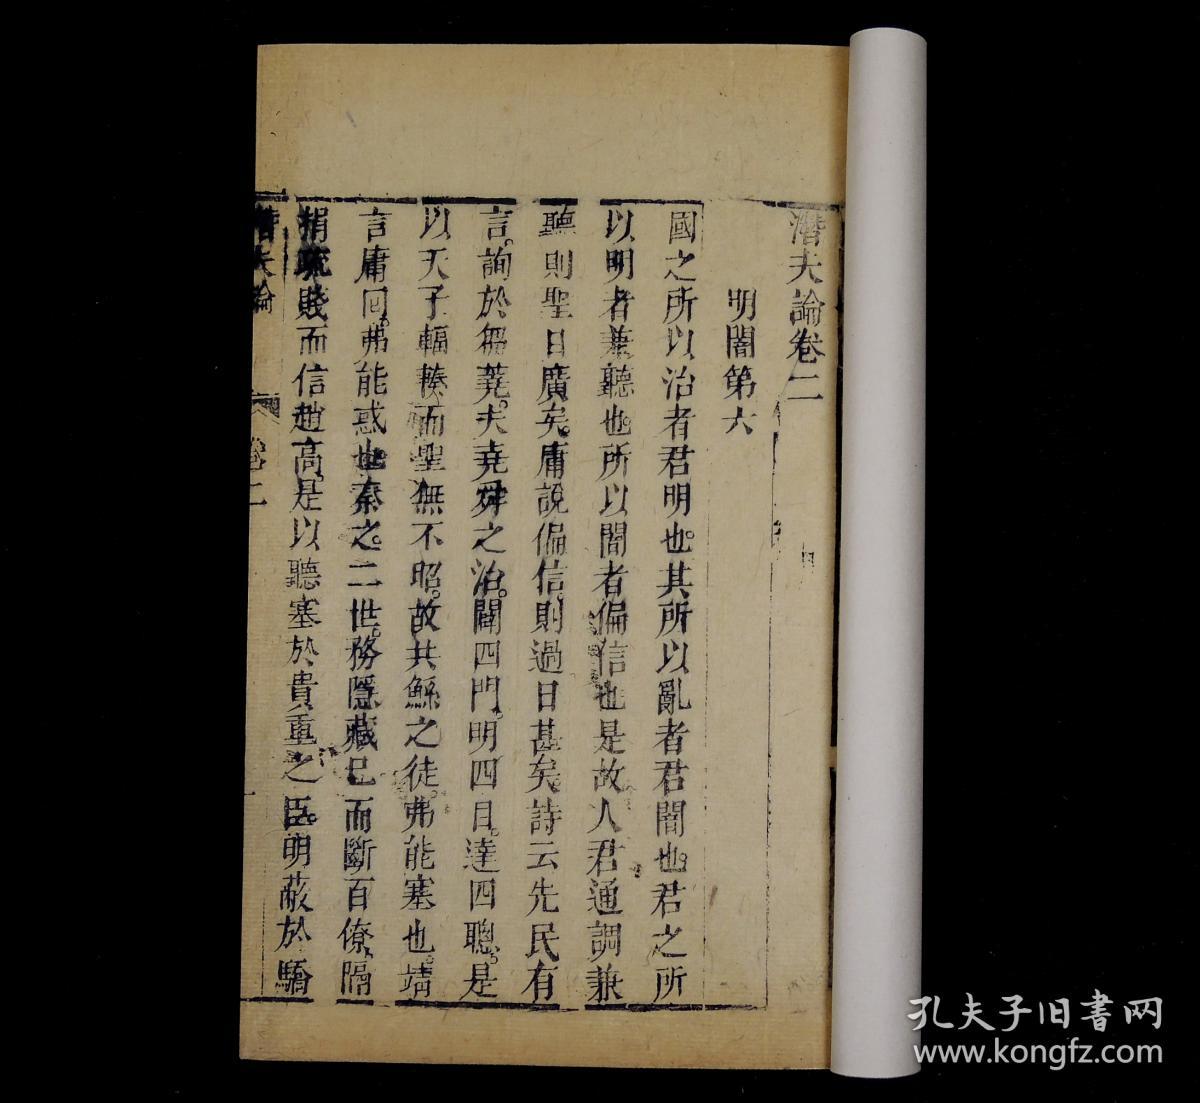 潛夫論卷二
明闇第六
國之所以治者君明也其所以亂者君闇也君之所
以明者兼聽也所以闇者偏信也是故人君通調兼
聽則聖日廣矣庸說偏信則過日甚矣詩云先民有
言詢於芻蕘夫堯舜之治闢四門明四目達四聰是
以天子輻輳而聖無不昭故共鯀之徒弗能塞也靖
言庸回弗能惑也秦之二世務隱藏己而斷百僚隔
捐疏賤而信趙高是以聽塞於貴重之臣明蔽於驕
潛夫論 卷二 一
孔夫子旧书网
www.kongfz.com